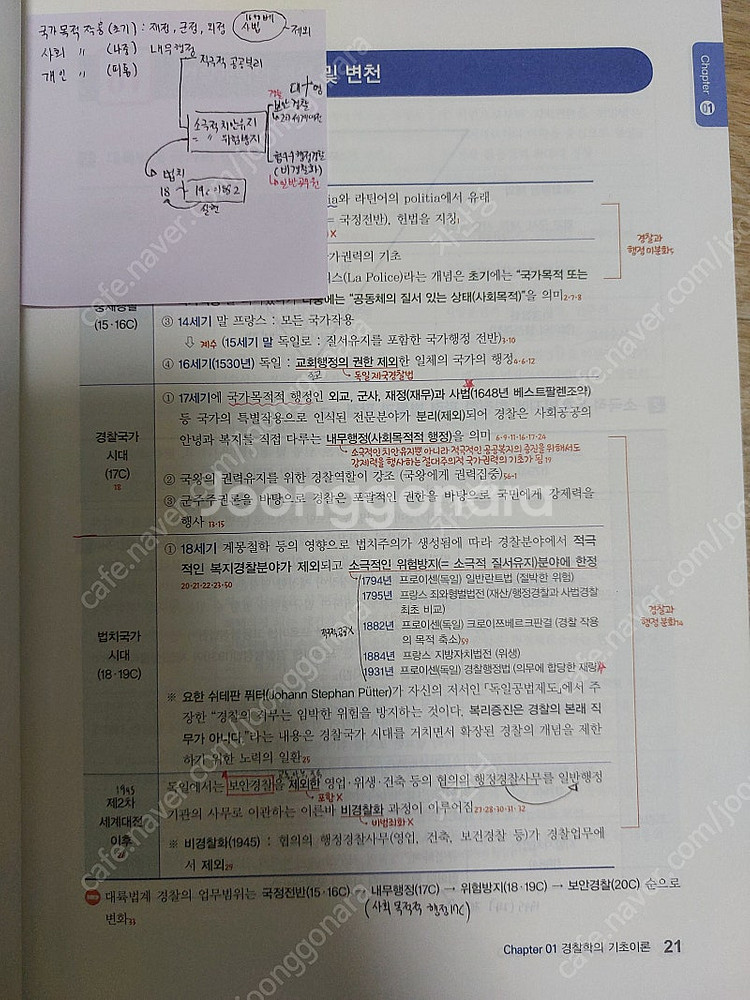 국가목적 작용(초기) : 재정, 군정, 외정 사법 → 제외
사회 〃 (나중) 내무행정
개인 〃 (파통)
적극적 공공복리
소극적 치안유지
= 〃 위험방지
보안경찰
협의의 행정경찰
(비경찰화)
↳ 일반공무원
법치
18 ~ 19C
실현
및 변천
Chapter
01
ia와 라틴어의 politia에서 유래
= 국정전반), 헌법을 지칭1
경찰과
행정 미분화5
가권력의 기초
스(La Police)라는 개념은 초기에는 “국가목적 또는
에는 “공동체의 질서 있는 상태(사회목적)”을 의미2·7·8
(15·16C)
③ 14세기 말 프랑스 : 모든 국가작용
⇩ 계수 (15세기 말 독일로 : 질서유지를 포함한 국가행정 전반)3·10
④ 16세기(1530년) 독일 : 교회행정의 권한 제외한 일체의 국가의 행정4·6·12
↳ 독일 제국경찰법
경찰국가
시대
(17C)
18
① 17세기에 국가목적적 행정인 외교, 군사, 재정(재무)과 사법(1648년 베스트팔렌조약)
등 국가의 특별작용으로 인식된 전문분야가 분리(제외)되어 경찰은 사회공공의
안녕과 복지를 직접 다루는 내무행정(사회목적적 행정)을 의미 6·9·11·16·17·24
↳ 소극적인 치안유지뿐 아니라 적극적인 공공복지의 증진을 위해서도
강제력을 행사하는 절대주의적 국가권력의 기초가 됨19
② 국왕의 권력유지를 위한 경찰역할이 강조 (국왕에게 권력집중)56·1
③ 군주주권론을 바탕으로 경찰은 포괄적인 권한을 바탕으로 국민에게 강제력을
행사 13·15
법치국가
시대
(18·19C)
① 18세기 계몽철학 등의 영향으로 법치주의가 생성됨에 따라 경찰분야에서 적극
적인 복지경찰분야가 제외되고 소극적인 위험방지(= 소극적 질서유지)분야에 한정
20·21·22·23·50
1794년 프로이센(독일) 일반란트법 (절박한 위험)
1795년 프랑스 죄와형벌법전 (재산/행정경찰과 사법경찰
최초 비교)
1882년 프로이센(독일) 크로이쯔베르크판결 (경찰 작용
의 목적 축소)59
1884년 프랑스 지방자치법전 (위생)
1931년 프로이센(독일) 경찰행정법 (의무에 합당한 재량)
경찰과
행정 분화14
※ 요한 쉬테판 퓌터(Johann Stephan Pütter)가 자신의 저서인 「독일공법제도」에서 주
장한 “경찰의 직무는 임박한 위험을 방지하는 것이다. 복리증진은 경찰의 본래 직
무가 아니다.”라는 내용은 경찰국가 시대를 거치면서 확장된 경찰의 개념을 제한
하기 위한 노력의 일환25
1945
제2차
세계대전
이후
독일에서는 보안경찰을 제외한 영업·위생·건축 등의 협의의 행정경찰사무를 일반행정
↳ 포함 X
기관의 사무로 이관하는 이른바 비경찰화 과정이 이루어짐27·28·30·31·32
↳ 비범죄화 X
※ 비경찰화(1945) : 협의의 행정경찰사무(영업, 건축, 보건경찰 등)가 경찰업무에
서 제외29
대륙법계 경찰의 업무범위는 국정전반(15·16C) → 내무행정(17C) → 위험방지(18·19C) → 보안경찰(20C) 순으로
변화33
(사회 목적적 행정 17C)
Chapter 01 경찰학의 기초이론 21
Joonggonara
cafe.naver.com/joonggonara